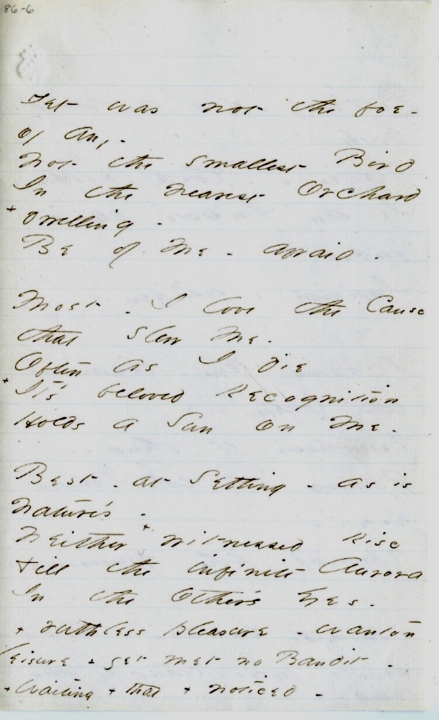 86-6
Yet was not the foe -
of any -
Not the smallest Bird
In the nearest Orchard
+ Dwelling -
Be of Me - afraid -
Most - I love the Cause
that slew Me -
Often as I die
+ It's beloved Recognition
Holds a Sun on Me -
Best - at Setting - as is
Nature's -
Neither + witnessed Rise
Till the infinite Aurora
In the Other's Eyes -
+ ruthless pleasure - wanton
leisure + yet met no Bandit -
+ waiting + that + noticed -